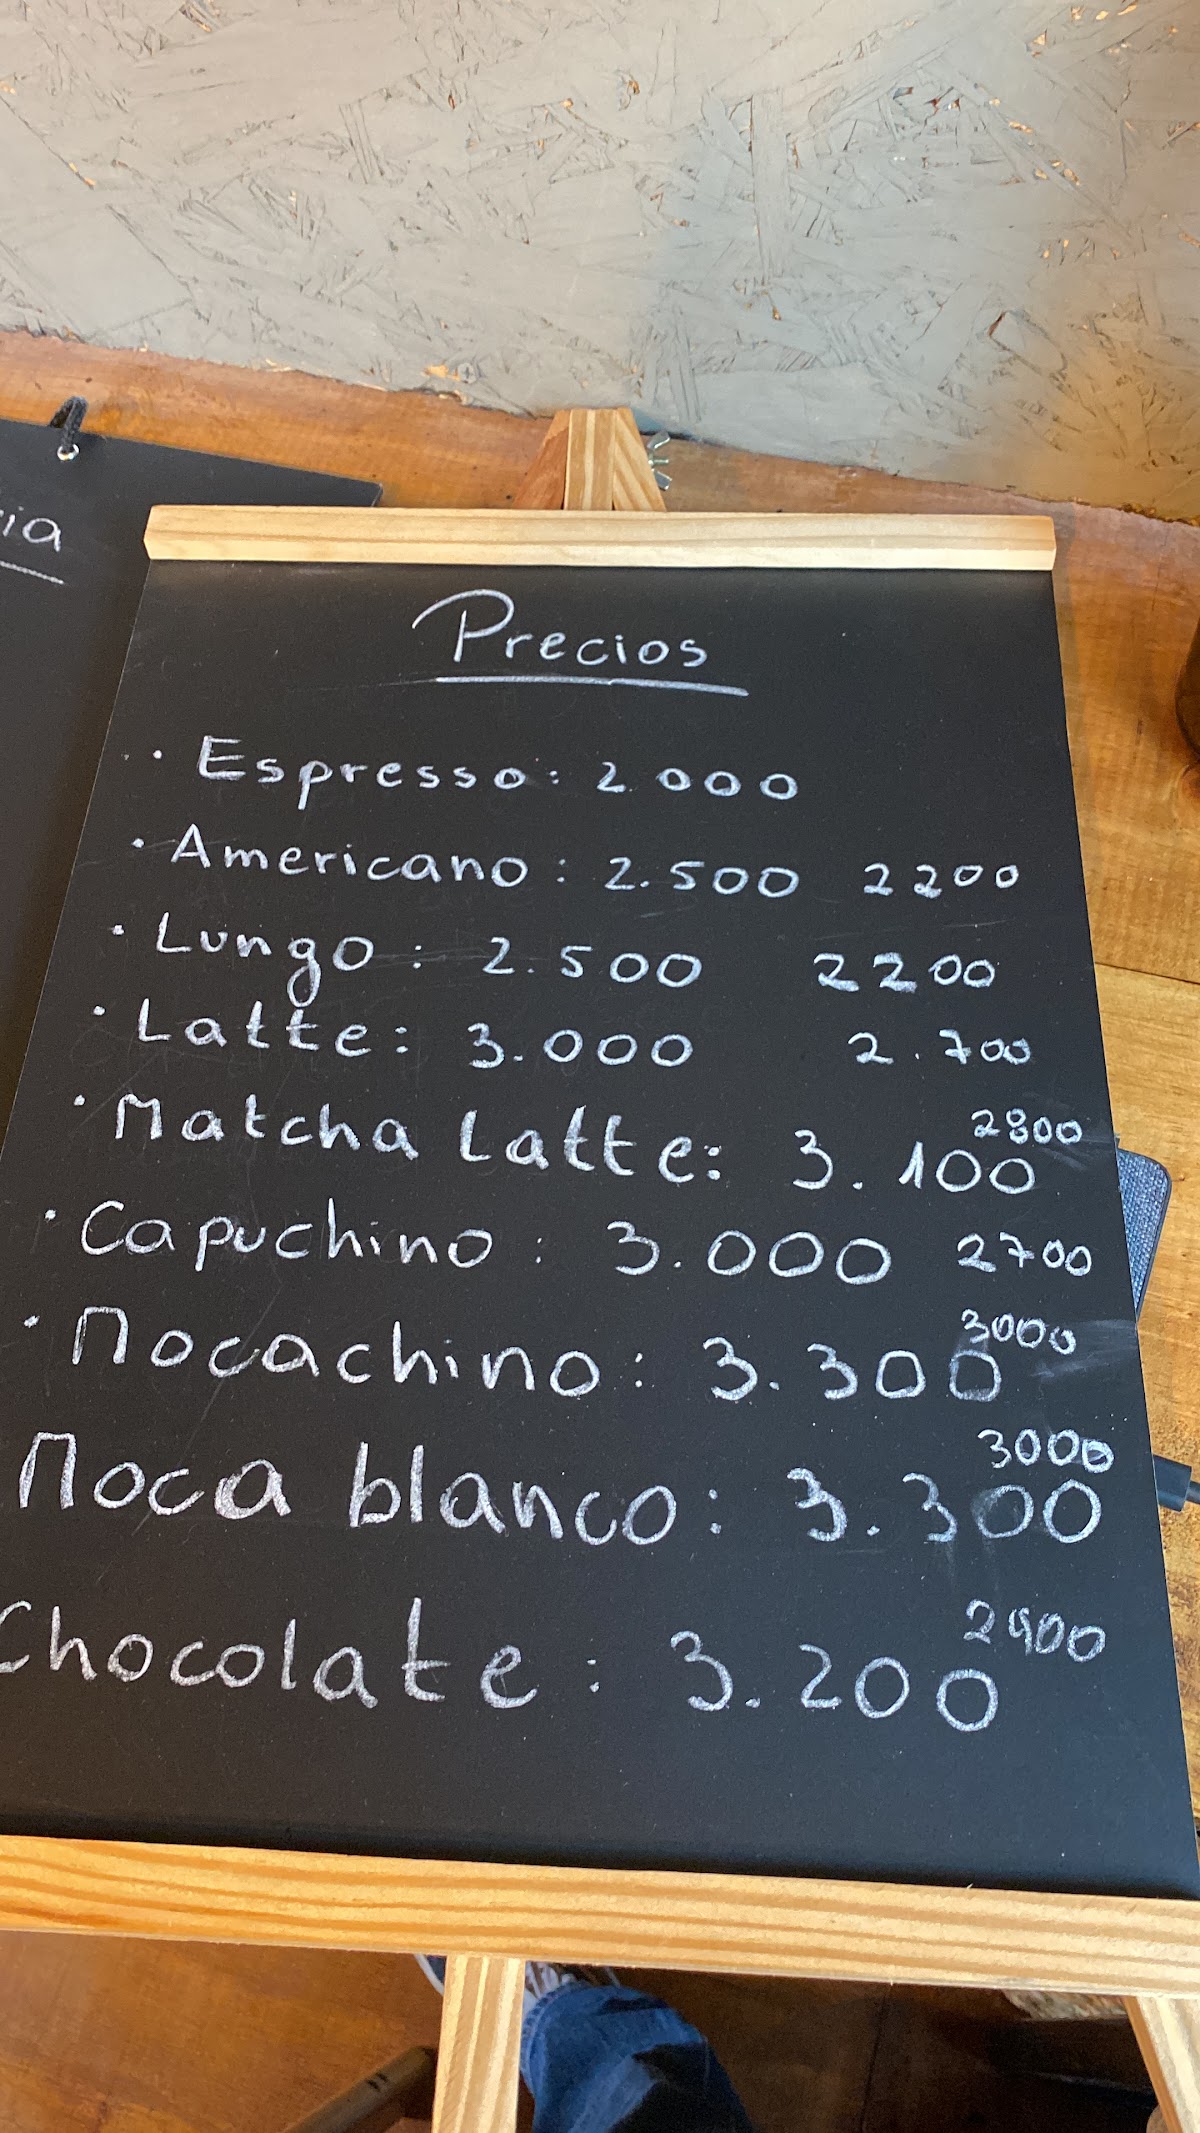 Precios
· Espresso: 2.000
· Americano: 2.500 2200
· Lungo: 2.500 2200
· Latte: 3.000 2.700
· Matcha Latte: 3.100 2800
· Capuchino: 3.000 2700
· Mocachino: 3.300 3000
Moca blanco: 3.300 3000
Chocolate: 3.200 2900